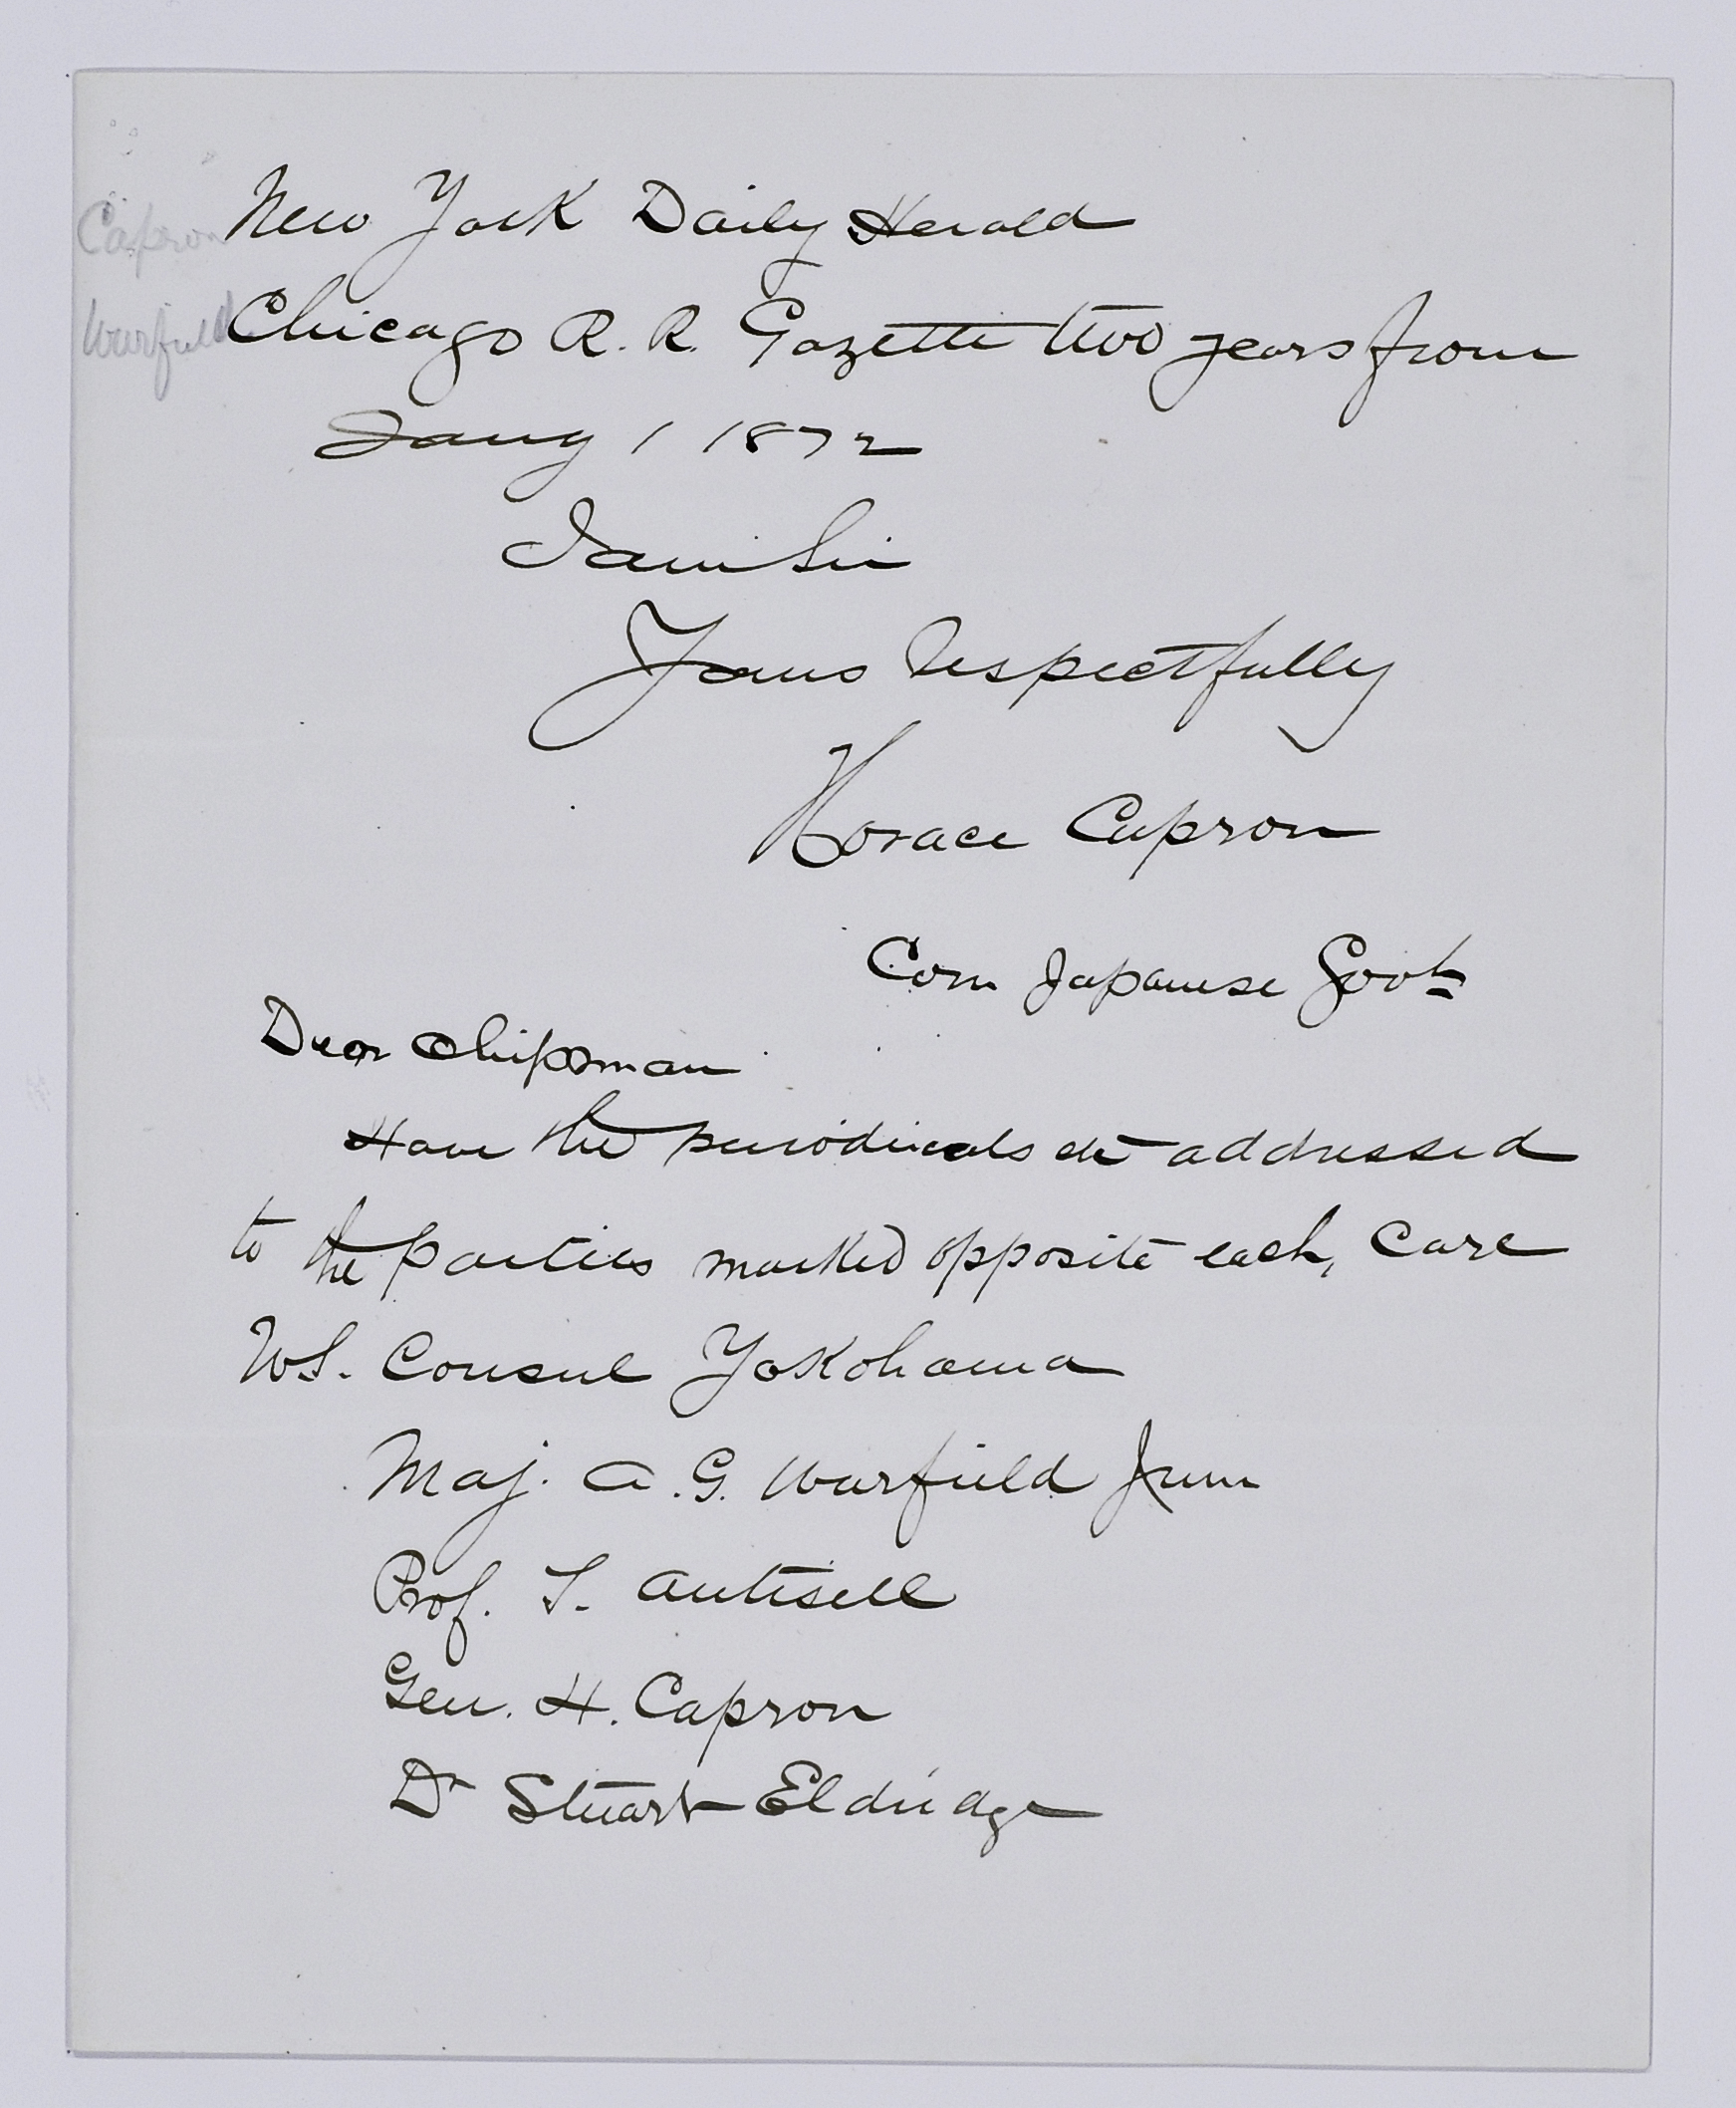 Capron New York Daily Herald
Warfield Chicago R. R. Gazette two years from
Jany 1 1872
I am Sir
Yours respectfully
Horace Capron
Com Japanese Govt
Dear Chipman
Have the periodicals etc addressed
to the parties marked opposite each, care
US. Consul Yokohama
Maj. A. G. Warfield Junr
Prof. T. Antisell
Gen. H. Capron
Dr Stuart Eldridge